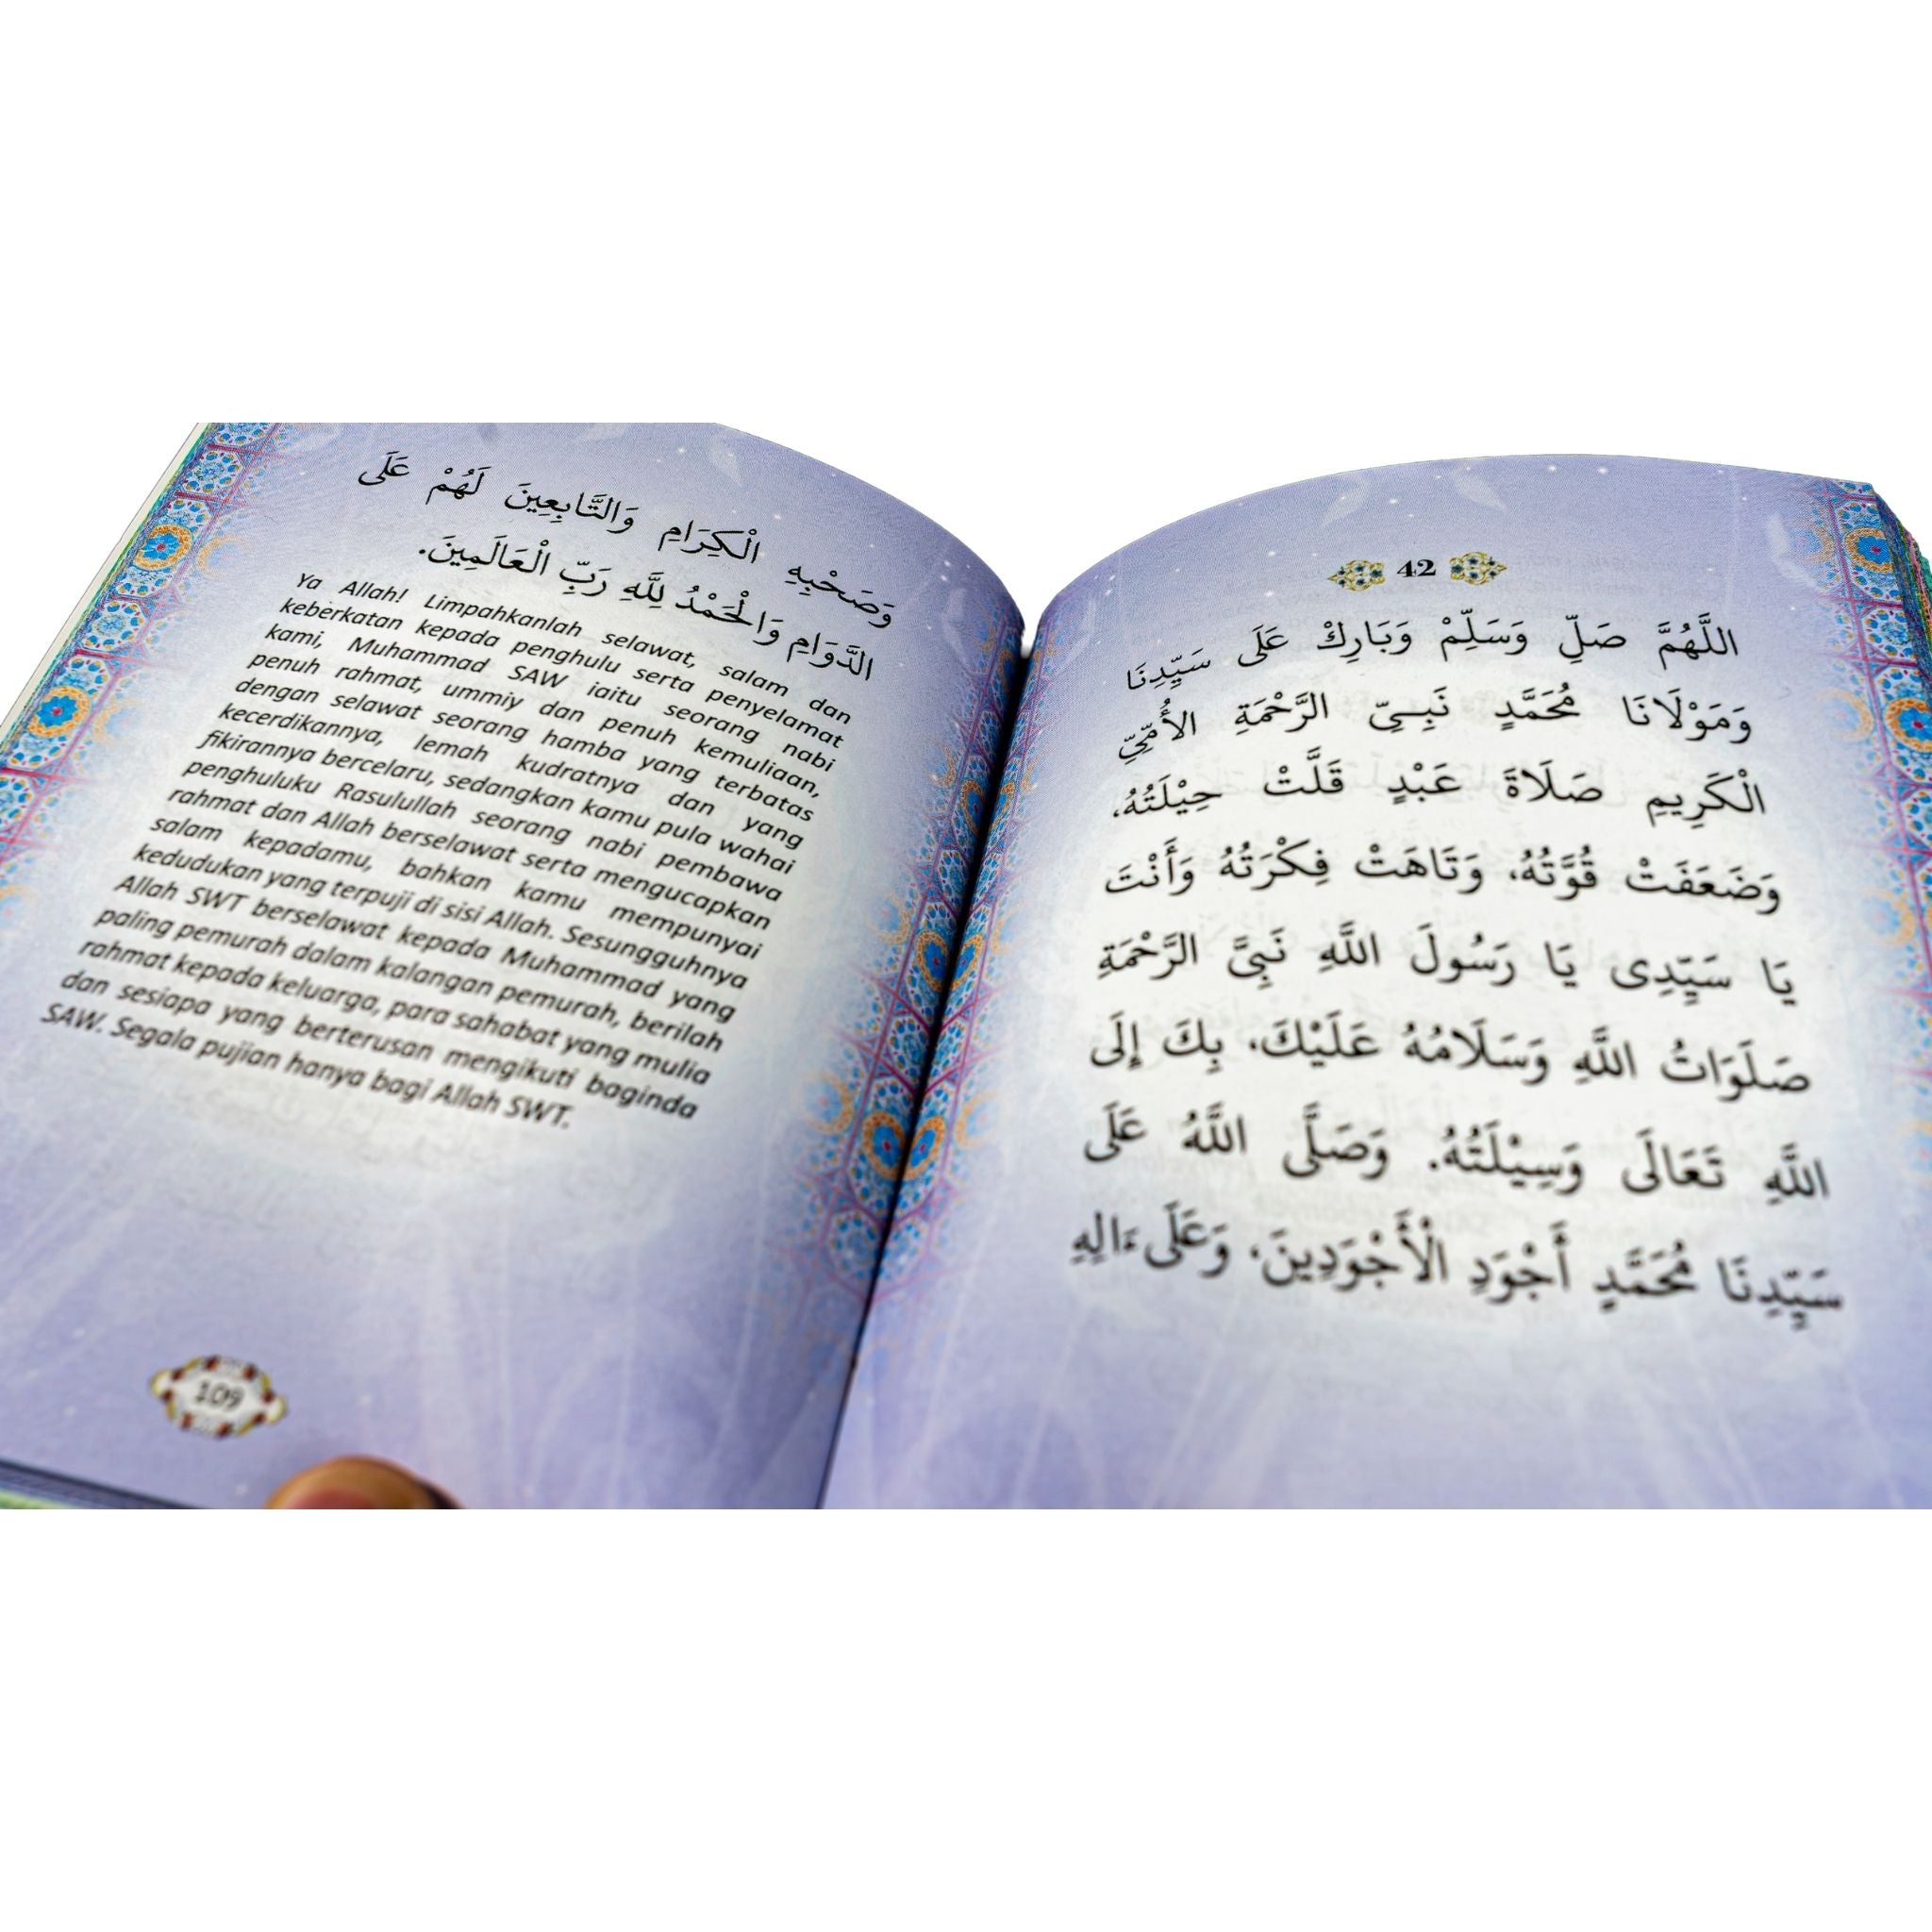 42
اللَّهُمَّ صَلِّ وَسَلِّمْ وَبَارِكْ عَلَى سَيِّدِنَا
وَمَوْلَانَا مُحَمَّدٍ نَبِيِّ الرَّحْمَةِ الأُمِّيِّ
الْكَرِيمِ صَلَاةَ عَبْدٍ قَلَّتْ حِيْلَتُهُ،
وَضَعَفَتْ قُوَّتُهُ، وَتَاهَتْ فِكْرَتُهُ وَأَنْتَ
يَا سَيِّدِى يَا رَسُولَ اللَّهِ نَبِىَّ الرَّحْمَةِ
صَلَوَاتُ اللَّهِ وَسَلَامُهُ عَلَيْكَ، بِكَ إِلَى
اللَّهِ تَعَالَى وَسِيْلَتُهُ. وَصَلَّى اللَّهُ عَلَى
سَيِّدِنَا مُحَمَّدٍ أَجْوَدِ الْأَجْوَدِينَ، وَعَلَى ءَالِهِ
وَصَحْبِهِ الْكِرَامِ وَالتَّابِعِينَ لَهُمْ عَلَى
الدَّوَامِ وَالْحَمْدُ لِلَّهِ رَبِّ الْعَالَمِينَ.
Ya Allah! Limpahkanlah selawat, salam dan
keberkatan kepada penghulu serta penyelamat
kami, Muhammad SAW iaitu seorang nabi
penuh rahmat, ummiy dan penuh kemuliaan,
dengan selawat seorang hamba yang terbatas
kecerdikannya, lemah kudratnya dan yang
fikirannya bercelaru, sedangkan kamu pula wahai
penghuluku Rasulullah seorang nabi pembawa
rahmat dan Allah berselawat serta mengucapkan
salam kepadamu, bahkan kamu mempunyai
kedudukan yang terpuji di sisi Allah. Sesungguhnya
Allah SWT berselawat kepada Muhammad yang
paling pemurah dalam kalangan pemurah, berilah
rahmat kepada keluarga, para sahabat yang mulia
dan sesiapa yang berterusan mengikuti baginda
SAW. Segala pujian hanya bagi Allah SWT.
109